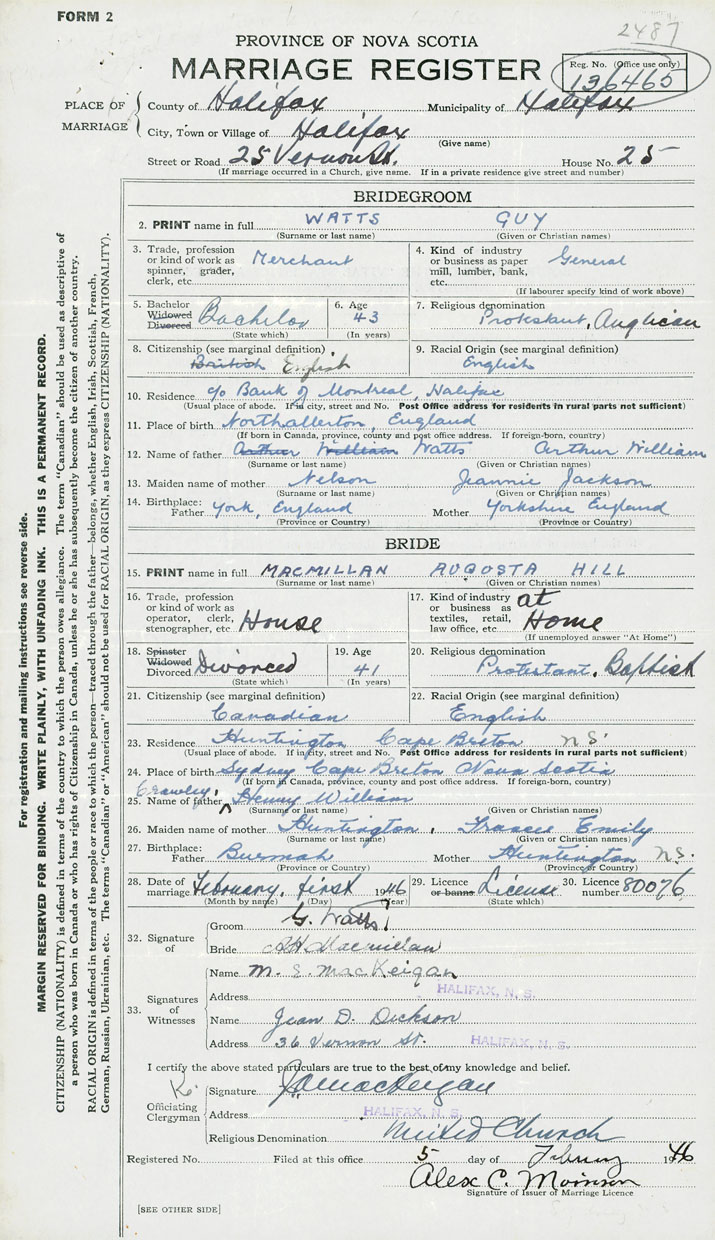 FORM 2
2487
PROVINCE OF NOVA SCOTIA
MARRIAGE REGISTER
Reg. No. (Office use only)
136465
PLACE OF MARRIAGE
County of Halifax Municipality of Halifax
City, Town or Village of Halifax
(Give name)
Street or Road 25 Vernon St. House No. 25
(If marriage occurred in a Church, give name. If in a private residence give street and number)
BRIDEGROOM
2. PRINT name in full WATTS GUY
(Surname or last name) (Given or Christian names)
3. Trade, profession or kind of work as spinner, grader, clerk, etc. Merchant
4. Kind of industry or business as paper mill, lumber, bank, etc. General
(If labourer specify kind of work above)
5. Bachelor Widowed Divorced Bachelor
(State which)
6. Age 43
(In years)
7. Religious denomination
Protestant, Anglican
8. Citizenship (see marginal definition)
British English
9. Racial Origin (see marginal definition)
English
10. Residence c/o Bank of Montreal, Halifax
(Usual place of abode. If in city, street and No. Post Office address for residents in rural parts not sufficient)
11. Place of birth Northallerton, England
(If born in Canada, province, county and post office address. If foreign-born, country)
12. Name of father Arthur William Watts Arthur William
(Surname or last name) (Given or Christian names)
13. Maiden name of mother Nelson Jeannie Jackson
(Surname or last name) (Given or Christian names)
14. Birthplace: Father York, England Mother Yorkshire England
(Province or Country) (Province or Country)
BRIDE
15. PRINT name in full MACMILLAN AUGUSTA HILL
(Surname or last name) (Given or Christian names)
16. Trade, profession or kind of work as operator, clerk, stenographer, etc. House
17. Kind of industry or business as textiles, retail, law office, etc. at Home
(If unemployed answer "At Home")
18. Spinster Widowed Divorced Divorced
(State which)
19. Age 41
(In years)
20. Religious denomination
Protestant, Baptist
21. Citizenship (see marginal definition)
Canadian
22. Racial Origin (see marginal definition)
English
23. Residence Huntington Cape Breton N.S.
(Usual place of abode. If in city, street and No. Post Office address for residents in rural parts not sufficient)
24. Place of birth Sydney Cape Breton Nova Scotia
(If born in Canada, province, county and post office address. If foreign-born, country)
Crawley,
25. Name of father Henry William
(Surname or last name) (Given or Christian names)
26. Maiden name of mother Huntington, Frances Emily
(Surname or last name) (Given or Christian names)
27. Birthplace: Father Burmah Mother Huntington N.S.
(Province or Country) (Province or Country)
28. Date of marriage February first 1946
(Month by name) (Day) (Year)
29. Licence or banns License
(State which)
30. Licence number 80076
32. Signature of
Groom G. Watts
Bride A H Macmillan
33. Signatures of Witnesses
Name M. E. MacKeigan
Address HALIFAX, N. S.
Name Jean D. Dickson
Address 36 Vernon St. HALIFAX, N. S.
I certify the above stated particulars are true to the best of my knowledge and belief.
Officiating Clergyman
Signature MacKeigan
Address HALIFAX, N. S.
Religious Denomination United Church
Registered No. Filed at this office 5 day of February 1946
Alex C. Morrison
Signature of Issuer of Marriage Licence
[SEE OTHER SIDE]
For registration and mailing instructions see reverse side.
MARGIN RESERVED FOR BINDING. WRITE PLAINLY, WITH UNFADING INK. THIS IS A PERMANENT RECORD.
CITIZENSHIP (NATIONALITY) is defined in terms of the country to which the person owes allegiance. The term "Canadian" should be used as descriptive of
a person who was born in Canada or who has rights of Citizenship in Canada, unless he or she has subsequently become the citizen of another country.
RACIAL ORIGIN is defined in terms of the people or race to which the person—traced through the father—belongs, whether English, Irish, Scottish, French,
German, Russian, Ukrainian, etc. The terms "Canadian" or "American" should not be used for RACIAL ORIGIN, as they express CITIZENSHIP (NATIONALITY).